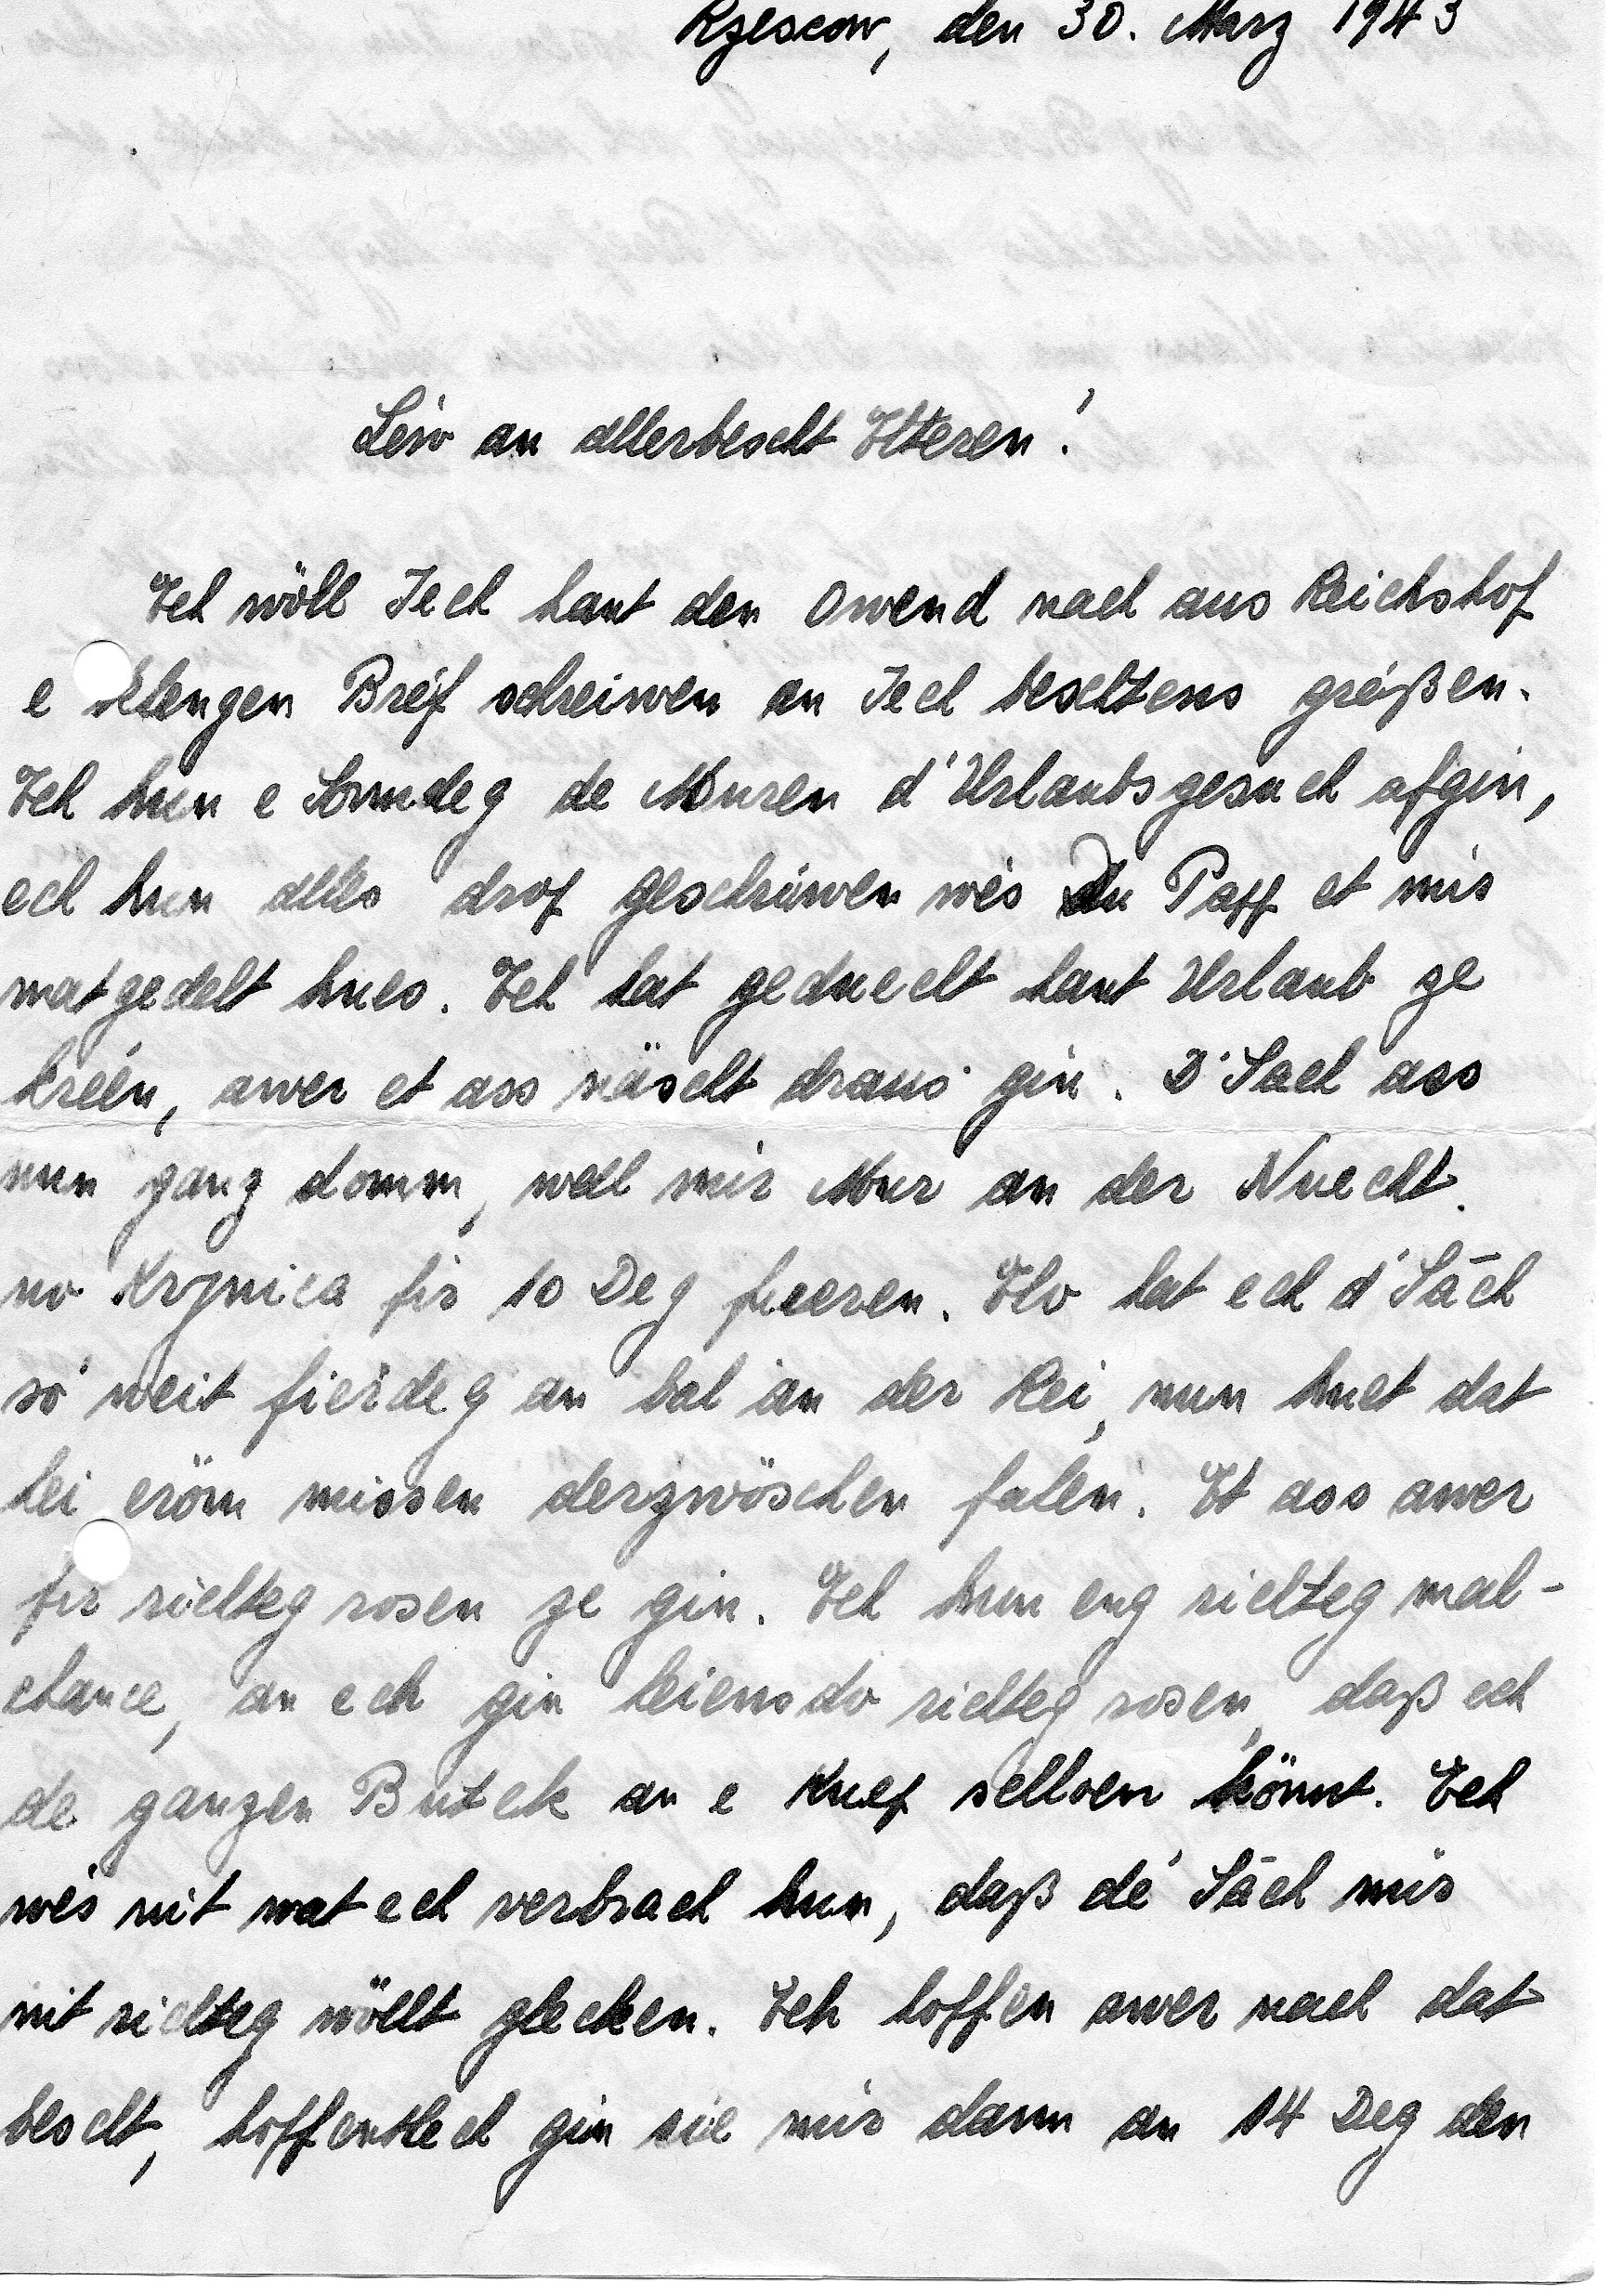 Rzescow, den 30. März 1943
Léiv an allerbescht Elteren!
Ech wöll Iech haut den Owend nach aus Reichshof
e klengen Bréif schreiwen an Iech beschtens gréißen.
Ech hun e Sonndeg de Muren d'Urlaubsgesuch afgin,
ech hun alles drof geschriwen wés de Papp et mir
matgedelt hues. Ech hat geduecht haut Urlaub ze
kréen, awer et ass näscht draus gin. D'Sach ass
nun ganz domm, well mir Mur an der Nuecht
no Krynica fir 10 Deg fueren. Elo hat ech d'Sāch
so' weit fierdeg an hal an der Rei, nun huet dat
hei eröm missen derzwöschen falen. Et ass awer
fir richteg rosen ze gin. Ech hun eng richteg mal-
chance, an ech gin heiensdo richteg rosen, daß ech
de ganzen Buttek an e Knuef schloen könnt. Ech
wés nit wat ech verbrach hun, daß dé Sāch mir
nit richteg wöllt glecken. Ech hoffen awer nach dat
bescht, hoffentlech gin sie mir dann an 14 Deg den